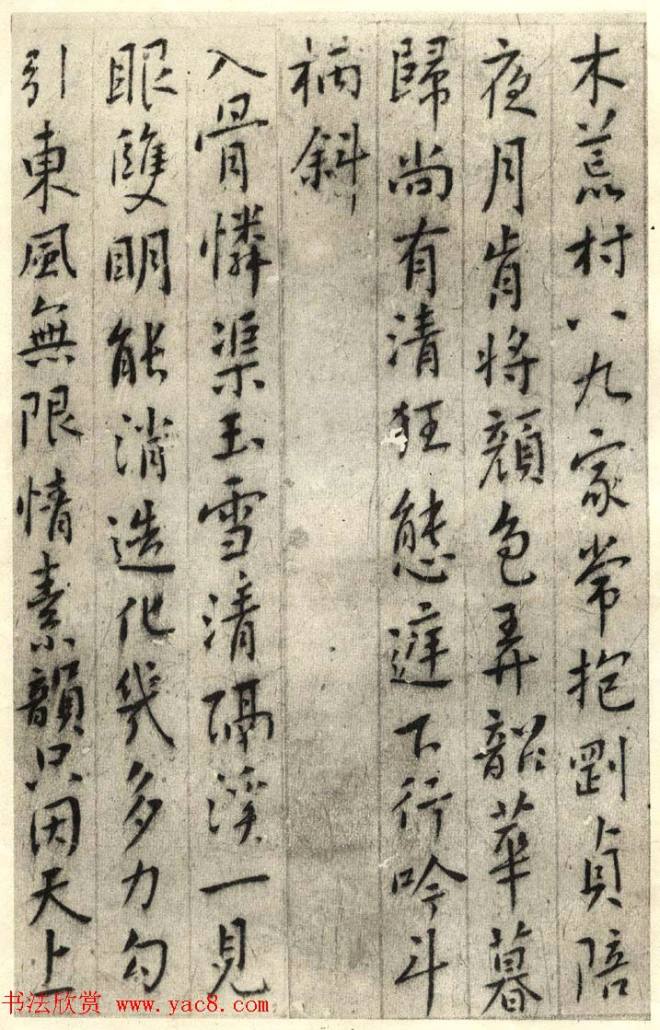 木荒村八九家常抱剛貞陪
夜月肯將顏色弄韶華暮
歸尚有清狂態庭下行吟斗
柄斜
入骨憐渠玉雪清隔溪一見
眼雙明能消造化幾多力勾
引東風無限情素韻只因天上
书法欣赏 www.yac8.com